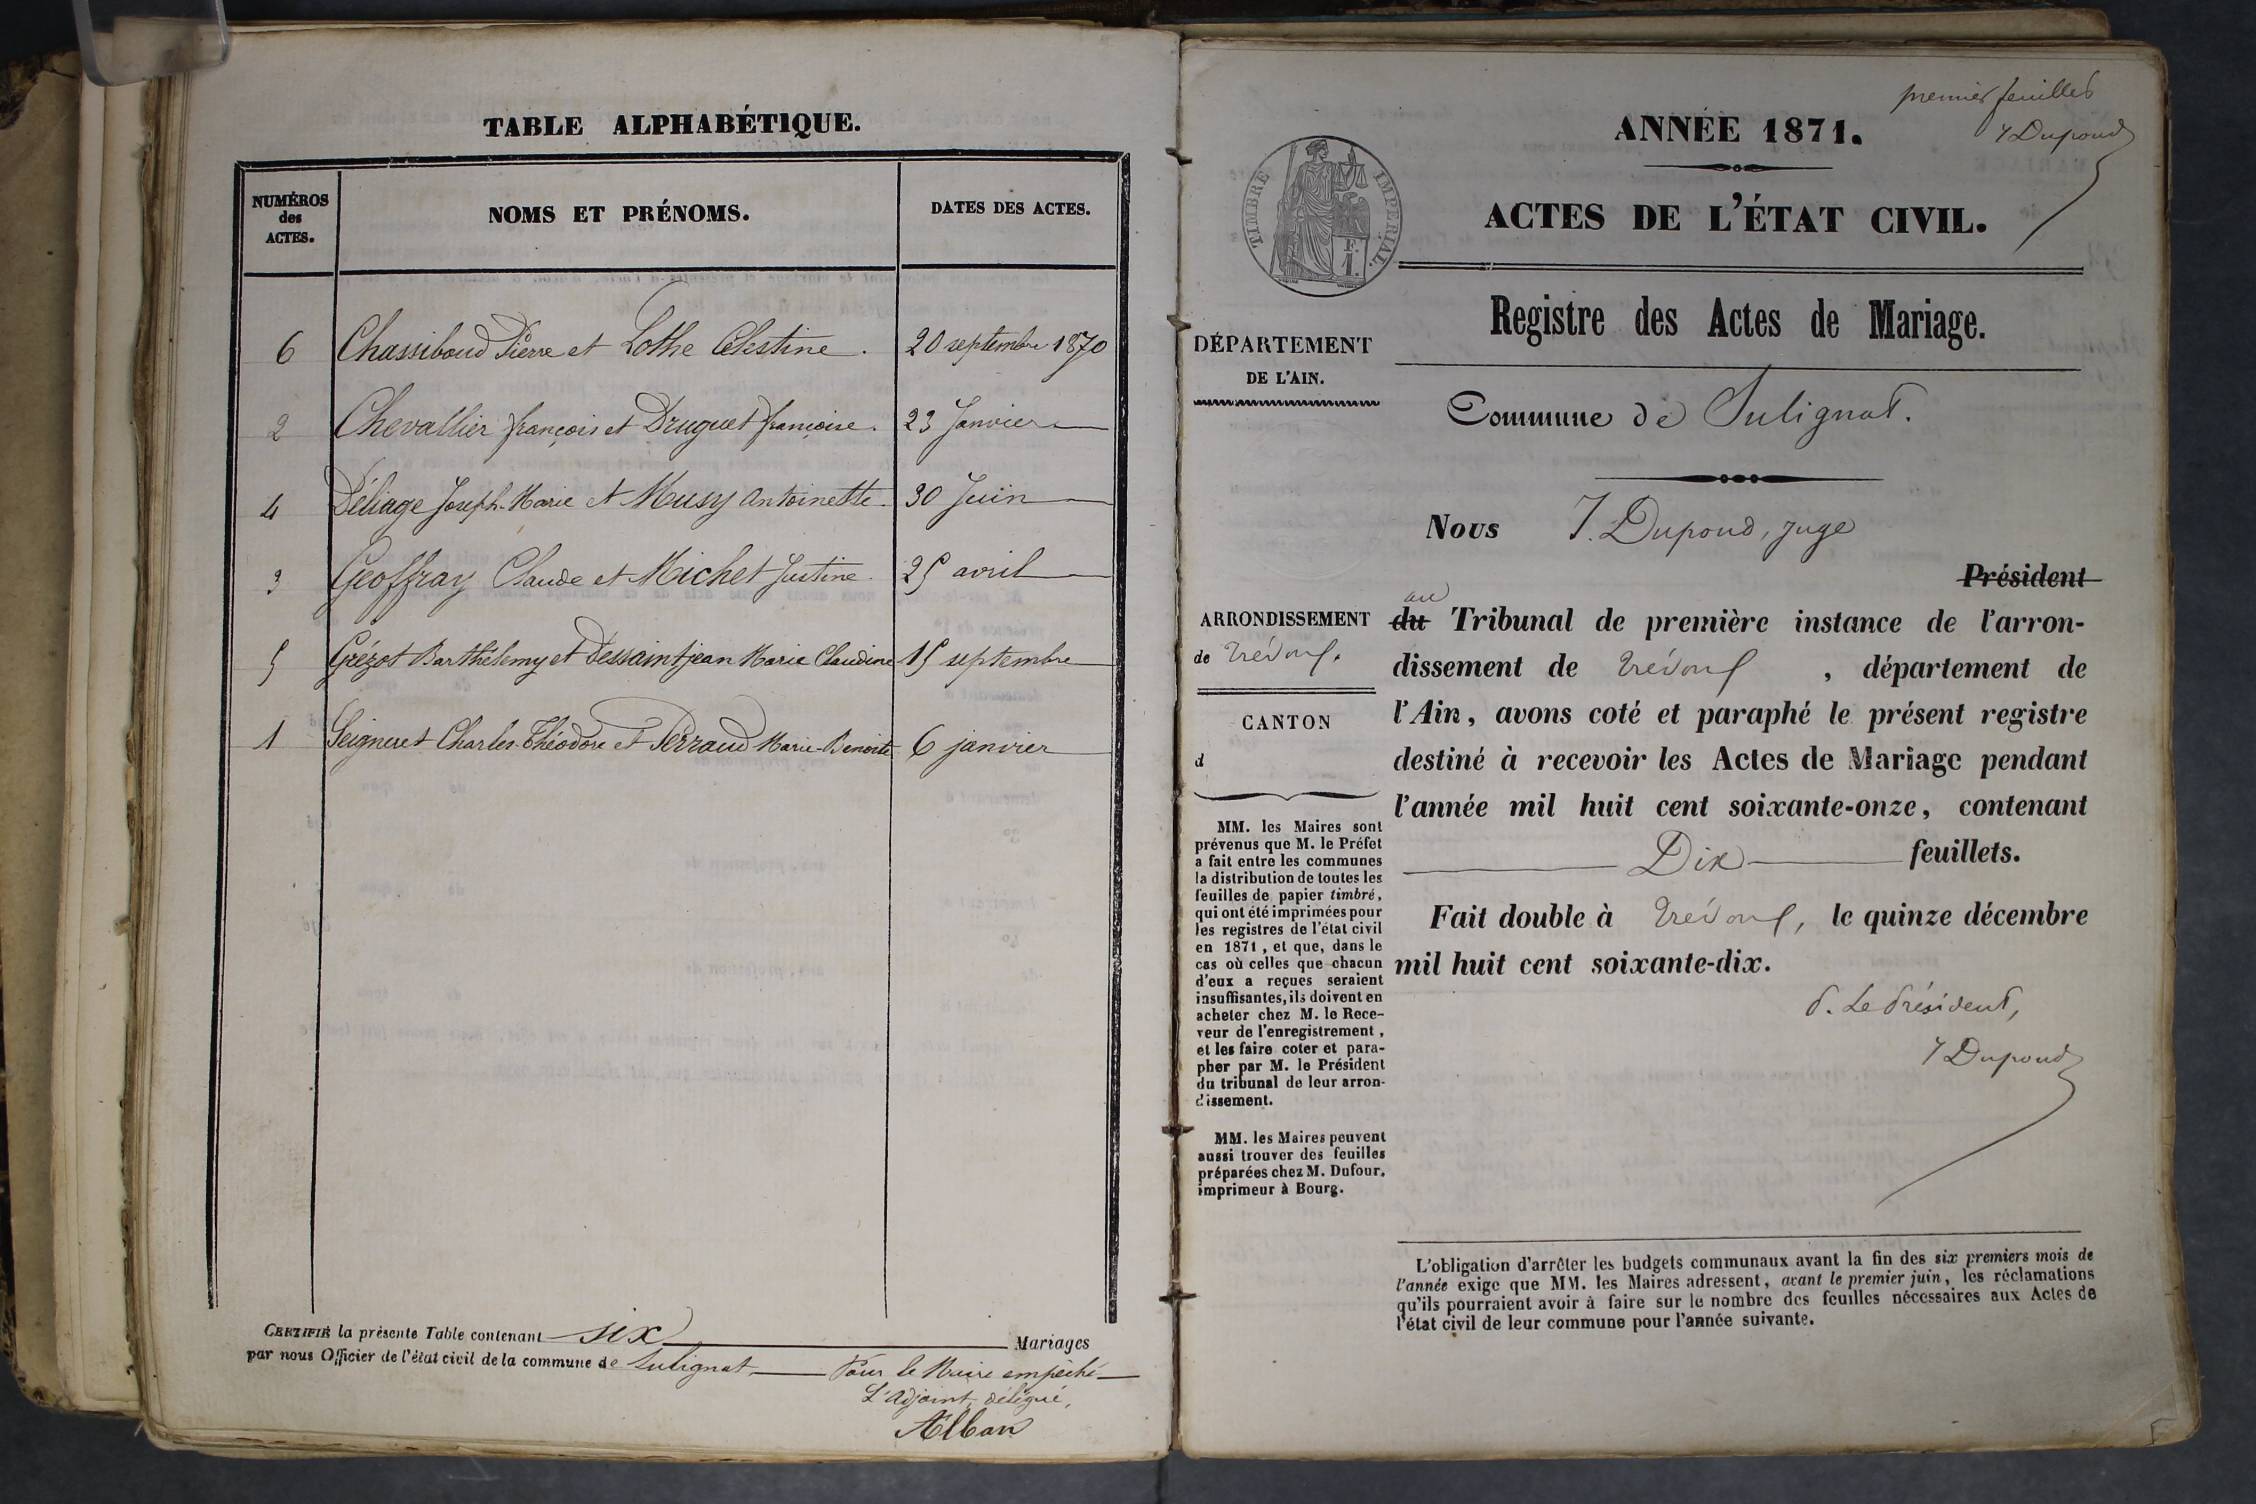 TABLE ALPHABÉTIQUE.
NUMÉROS
des
ACTES.
NOMS ET PRÉNOMS.
DATES DES ACTES.
6 Chassiboud Pierre et Lothe Célestine. 20 septembre 1870
2 Chevallier françois et Druguet françoise. 23 Janvier
4 Déliage Joseph-Marie et Musy Antoinette. 30 Juin
3 Geoffray Claude et Michet Justine. 25 avril
5 Grézot Barthélemy et Dessaintjean Marie Claudine 15 septembre
1 Seigneret Charles-Théodore et Perraud Marie-Benoite 6 janvier
CERTIFIÉ la présente Table contenant six Mariages
par nous Officier de l'état civil de la commune de Sulignat. Pour le Maire empêché
L'adjoint, délégué,
Alban
premier feuillet
J Dupond
ANNÉE 1871.
ACTES DE L'ÉTAT CIVIL.
TIMBRE IMPÉRIAL.
F.
1.
Registre des Actes de Mariage.
DÉPARTEMENT
DE L'AIN.
Commune de Sulignat.
Nous J. Dupond, juge
Président
au
ARRONDISSEMENT
de Trévoux.
CANTON
d
du Tribunal de première instance de l'arron-
dissement de Trévoux, département de
l'Ain, avons coté et paraphé le présent registre
destiné à recevoir les Actes de Mariage pendant
l'année mil huit cent soixante-onze, contenant
Dix feuillets.
Fait double à Trévoux, le quinze décembre
mil huit cent soixante-dix.
P. Le Président,
J Dupond
MM. les Maires sont
prévenus que M. le Préfet
a fait entre les communes
la distribution de toutes les
feuilles de papier timbré,
qui ont été imprimées pour
les registres de l'état civil
en 1871, et que, dans le
cas où celles que chacun
d'eux a reçues seraient
insuffisantes, ils doivent en
acheter chez M. le Rece-
veur de l'enregistrement,
et les faire coter et para-
pher par M. le Président
du tribunal de leur arron-
dissement.
MM. les Maires peuvent
aussi trouver des feuilles
préparées chez M. Dufour,
imprimeur à Bourg.
L'obligation d'arrêter les budgets communaux avant la fin des six premiers mois de
l'année exige que MM. les Maires adressent, avant le premier juin, les réclamations
qu'ils pourraient avoir à faire sur le nombre des feuilles nécessaires aux Actes de
l'état civil de leur commune pour l'année suivante.